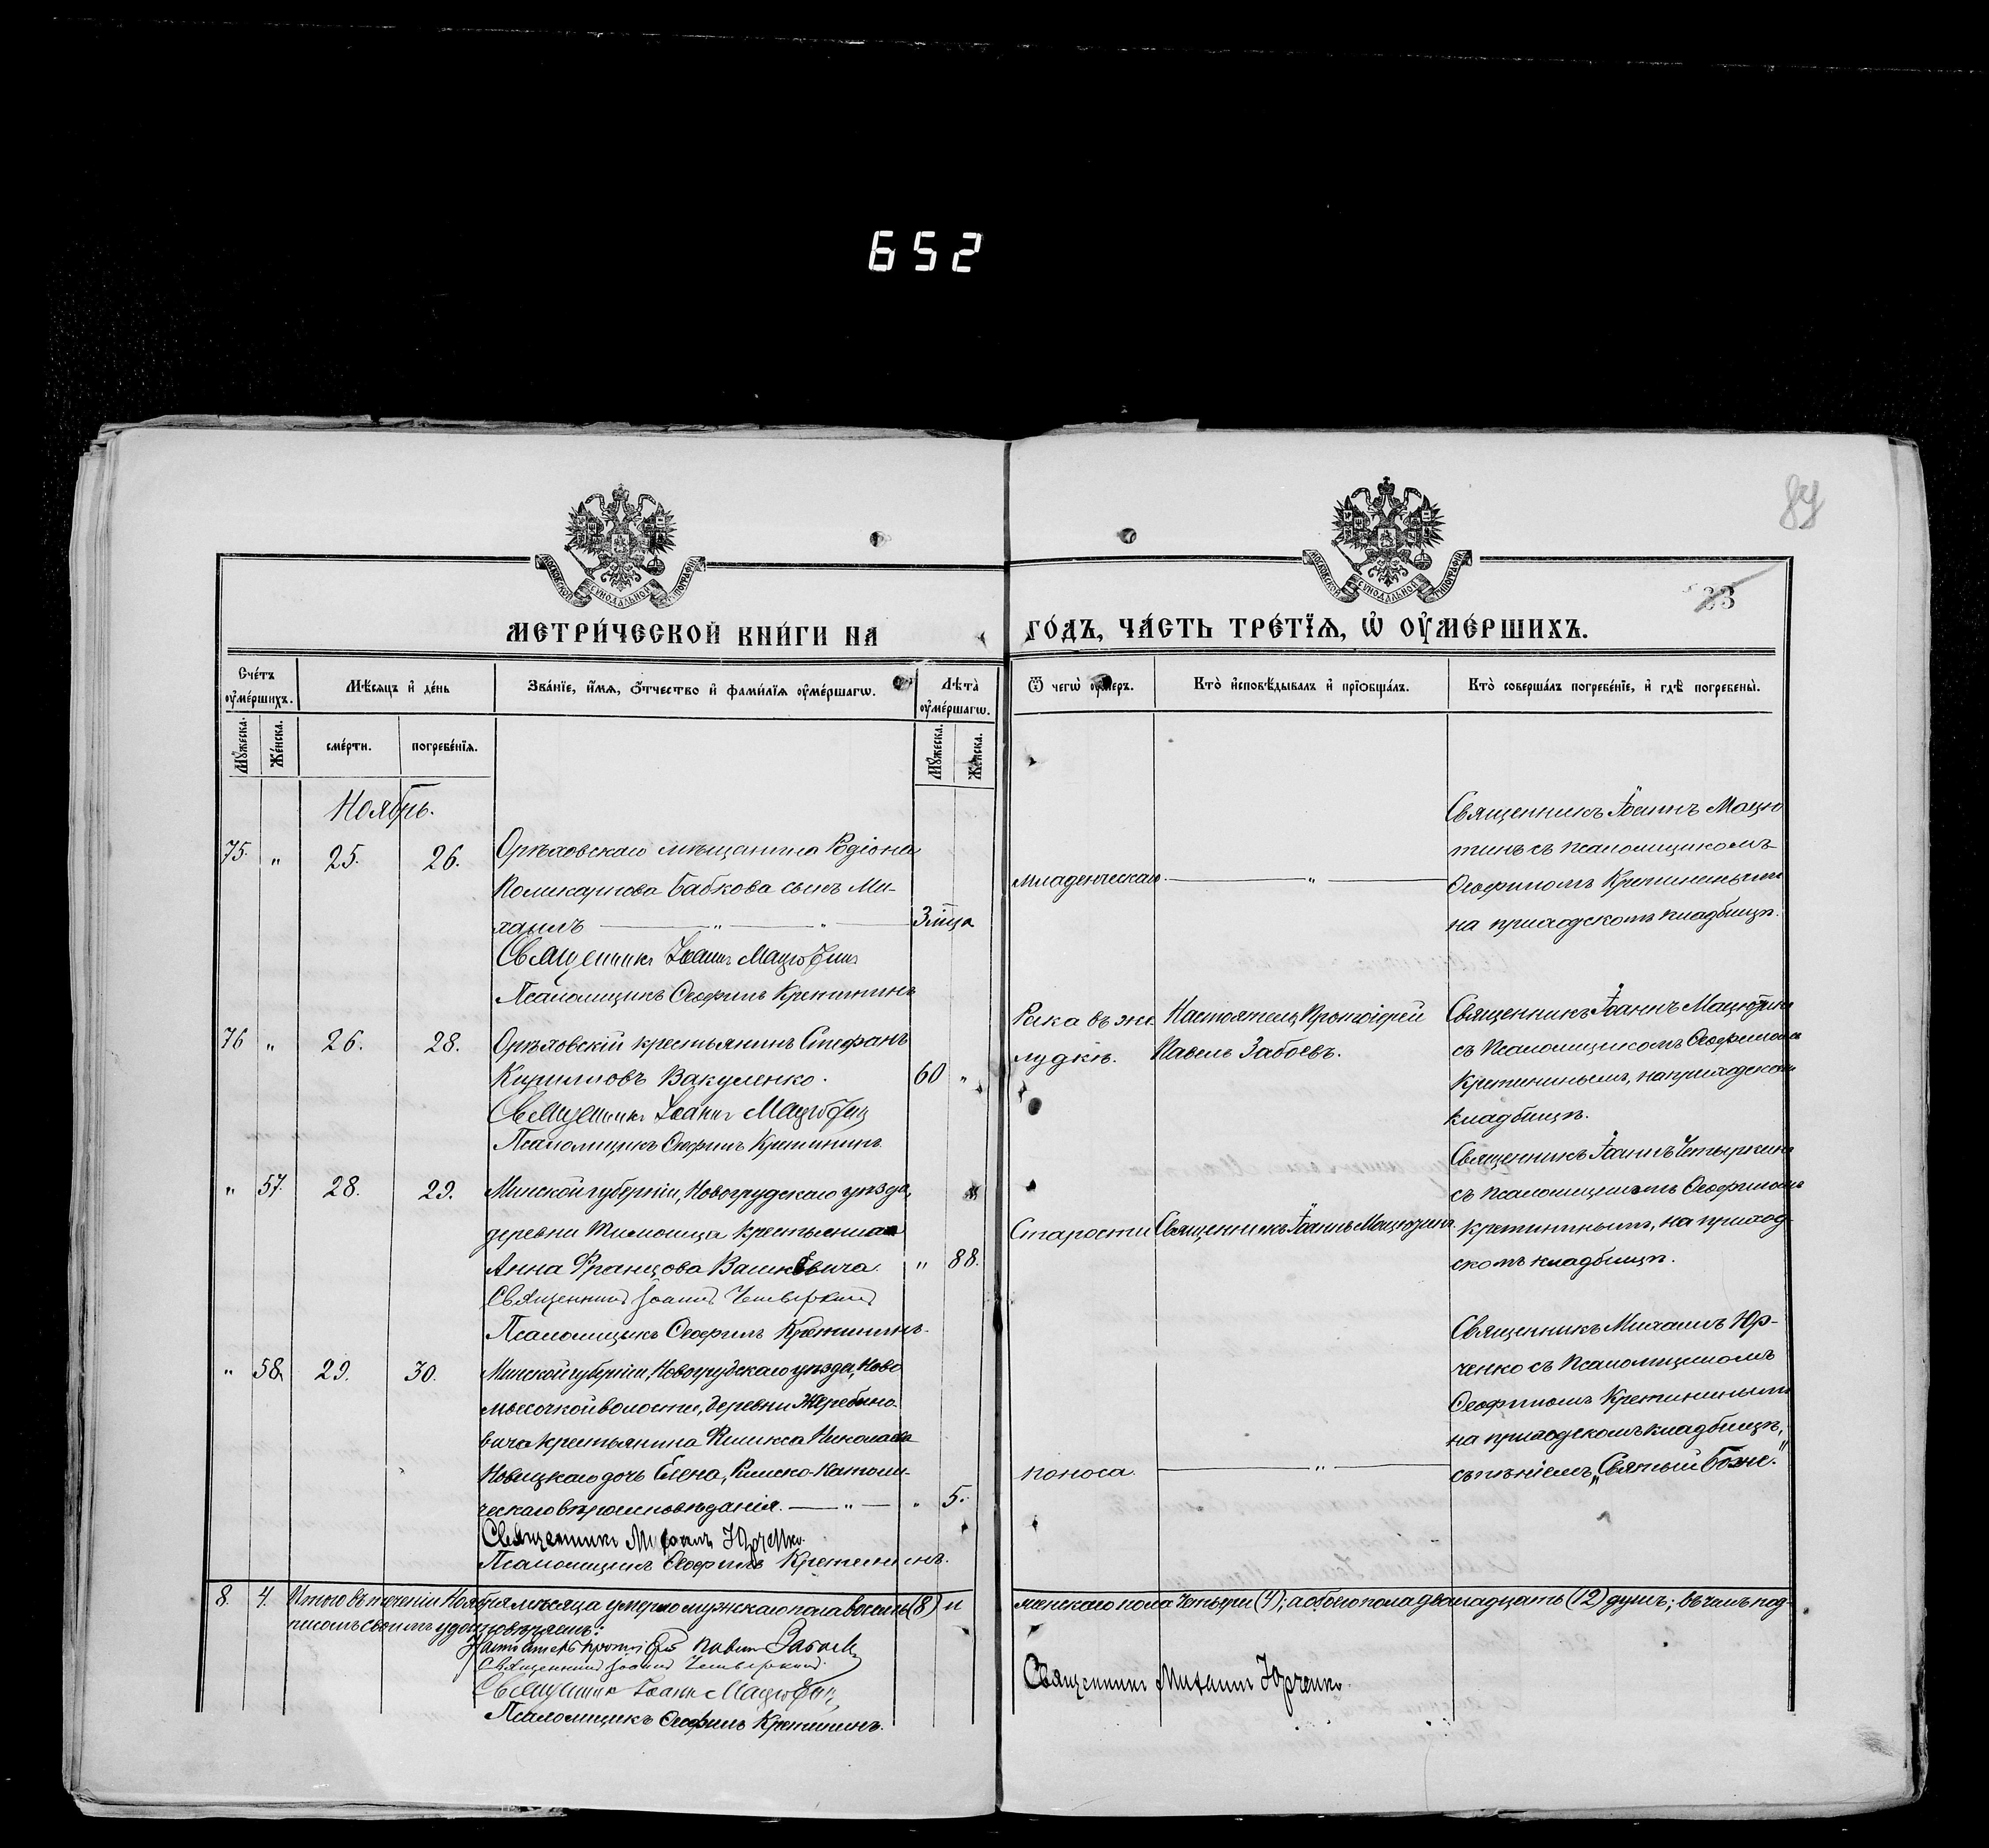 652
84
33
МОСКОВСКОЙ СѴНОДАЛЬНОЙ ТИПОГРАФІИ
МОСКОВСКОЙ СѴНОДАЛЬНОЙ ТИПОГРАФІИ
МЕТРИ́ЧЕСКОЙ КНИ́ГИ НА
ГО́ДЪ, ЧА́СТЬ ТРЕ́ТЇѦ, Ѡ҆ ОУ҆МЕ́РШИХЪ.
Сче́тъ оу҆ме́ршихъ.
Мꙋ́жеска.
Же́нска.
Мѣ́сяцъ и҆ де́нь
сме́рти.
погребе́нїѧ.
Зва́нїе, и҆́мѧ, ѻ҆́тчество и҆ фами́лїѧ оу҆ме́ршагѡ.
Лѣ́та оу҆ме́ршагѡ.
Мꙋ́жеска.
Же́нска.
Ѿ чегѡ̀ оу҆́меръ.
Кто̀ и҆сповѣ́дывалъ и҆ прїѻбща́лъ.
Кто̀ соверша́лъ погребе́нїе, и҆ гдѣ̀ погребены̀.
Ноябрь.
75. " 25. 26.
Орѣховскаго мѣщанина Родіона
Поликарпова Бабкова сынъ Ми-
хаилъ — " — " — 3 м-ца
Священникъ Іоаннъ Мацютинъ
Псаломщикъ Ѳеофилъ Кретининъ
Младенческая. — " —
Священникъ Іоаннъ Мацю
тинъ съ псаломщикомъ
Ѳеофиломъ Кретининымъ
на приходскомъ кладбищѣ.
76 " 26. 28.
Орѣховскій крестьянинъ Стефанъ
Кирилловъ Вакуленко. 60 "
Священникъ Іоаннъ Мацютинъ
Псаломщикъ Ѳеофилъ Кретининъ
Рака въ же
лудкѣ.
Настоятель Протоіерей
Павелъ Забоевъ.
Священникъ Іоаннъ Мацютинъ
съ псаломщикомъ Ѳеофиломъ
Кретининымъ, на приходскомъ
кладбищѣ.
" 57. 28. 29.
Минской губерніи, Новогрудскаго уѣзда,
деревни крестьянка
Анна Францова Вашкевича. " 88.
Священникъ Іоаннъ Четыркинъ
Псаломщикъ Ѳеофилъ Кретининъ.
Старости
Священникъ Іоаннъ Мацютинъ.
Священникъ Іоаннъ Четыркинъ
съ псаломщикомъ Ѳеофиломъ
Кретининымъ, на приход-
скомъ кладбищѣ.
" 58. 29. 30.
Минской губерніи, Новогрудскаго уѣзда, Ново
волости, деревни
крестьянина Николаева
Новицкаго дочь Елена, Римско-Католи-
ческаго вѣроисповѣданія. — " — " 5.
Священникъ Михаилъ Юрченко.
Псаломщикъ Ѳеофилъ Кретининъ.
поноса. — " —
Священникъ Михаилъ Юр-
ченко съ псаломщикомъ
Ѳеофиломъ Кретининымъ
на приходскомъ кладбищѣ,
съ пѣніемъ „Святый Боже."
8. 4. Итого въ теченіи Ноября мѣсяца умерло мужскаго пола восемь (8) и
женскаго пола четыре (4); а обоего пола двѣнадцать (12) душъ; въ чемъ под-
писомъ своимъ удостовѣряемъ:
Настоятель Протоіерей Павелъ Забоевъ
Священникъ Іоаннъ Четыркинъ.
Священникъ Іоаннъ Мацютинъ
Священникъ Михаилъ Юрченко.
Псаломщикъ Ѳеофилъ Кретининъ.